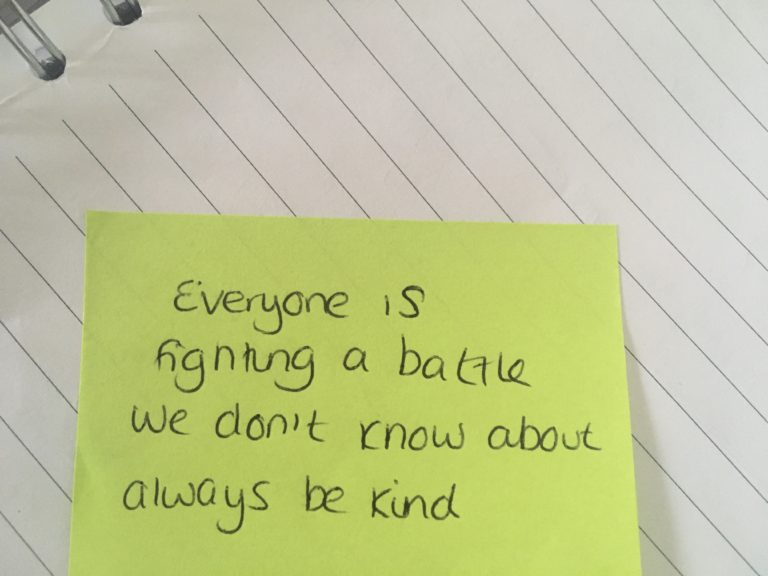 Everyone is
fighting a battle
we don't know about
always be kind